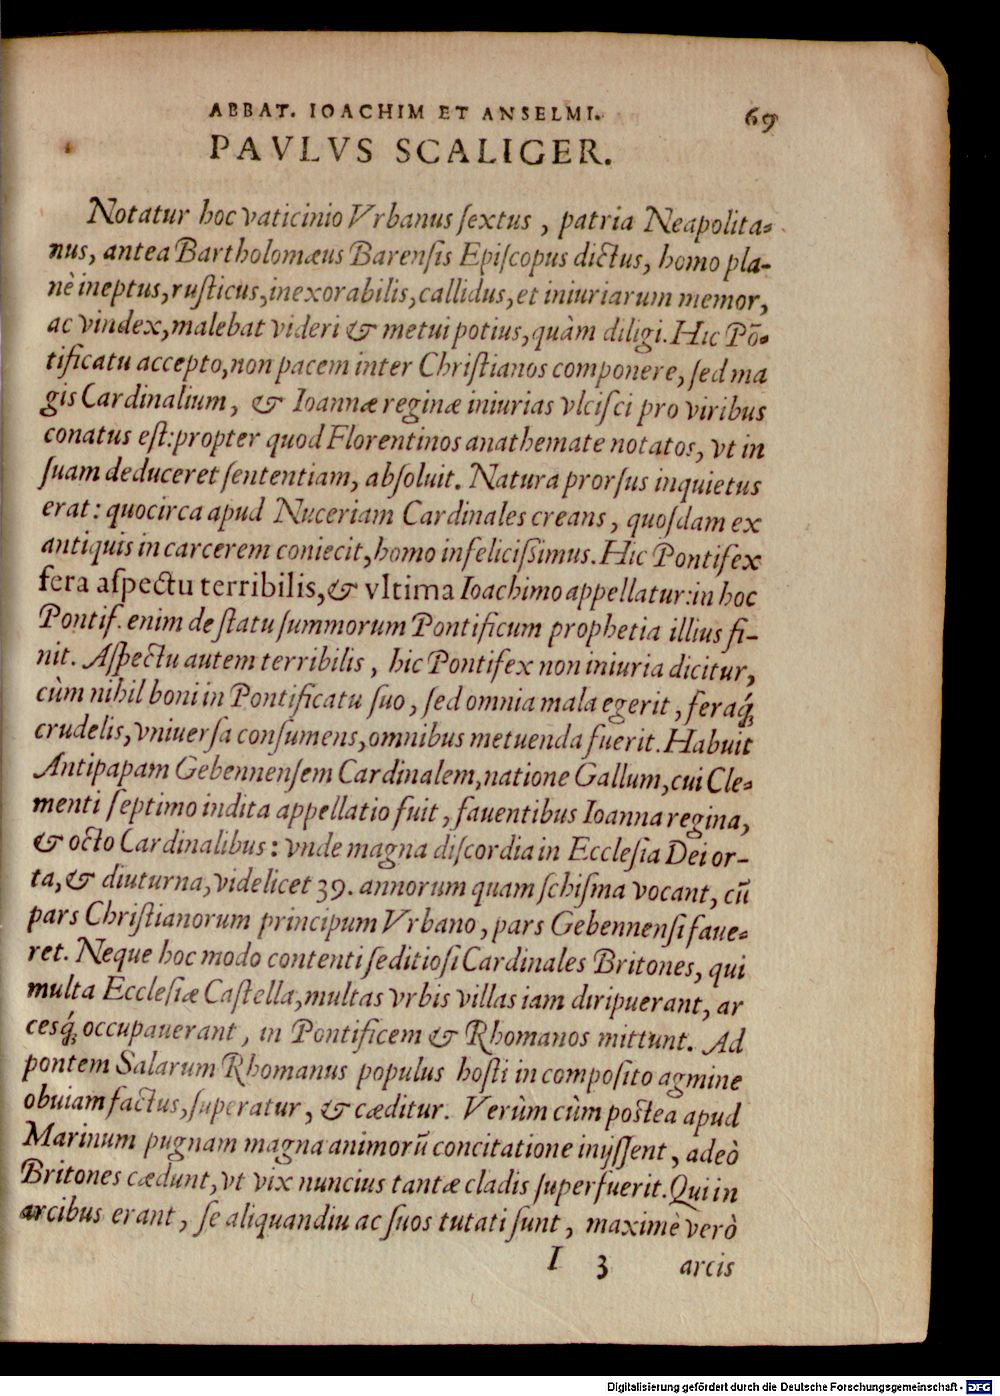 ABBAT. IOACHIM ET ANSELMI. 69
PAVLVS SCALIGER.
Notatur hoc vaticinio Vrbanus ſextus, patria Neapolita-
nus, antea Bartholomæus Barenſis Epiſcopus dictus, homo pla-
nè ineptus, ruſticus, inexorabilis, callidus, et iniuriarum memor,
ac vindex, malebat videri & metui potius, quàm diligi. Hic Põ-
tificatu accepto, non pacem inter Chriſtianos componere, ſed ma
gis Cardinalium, & Ioannæ reginæ iniurias vlciſci pro viribus
conatus eſt: propter quod Florentinos anathemate notatos, vt in
ſuam deduceret ſententiam, abſoluit. Natura prorſus inquietus
erat: quocirca apud Nuceriam Cardinales creans, quoſdam ex
antiquis in carcerem coniecit, homo infeliciſsimus. Hic Pontifex
fera aſpectu terribilis, & vltima Ioachimo appellatur: in hoc
Pontif. enim de ſtatu ſummorum Pontificum prophetia illius fi-
nit. Aſpectu autem terribilis, hic Pontifex non iniuria dicitur,
cùm nihil boni in Pontificatu ſuo, ſed omnia mala egerit, feraq́;
crudelis, vniuerſa conſumens, omnibus metuenda fuerit. Habuit
Antipapam Gebennenſem Cardinalem, natione Gallum, cui Cle-
menti ſeptimo indita appellatio fuit, fauentibus Ioanna regina,
& octo Cardinalibus: vnde magna diſcordia in Eccleſia Dei or-
ta, & diuturna, videlicet 39. annorum quam ſchiſma vocant, cũ
pars Chriſtianorum principum Vrbano, pars Gebennenſi faue-
ret. Neque hoc modo contenti ſeditioſi Cardinales Britones, qui
multa Eccleſiæ Caſtella, multas vrbis villas iam diripuerant, ar
cesq́; occupauerant, in Pontificem & Rhomanos mittunt. Ad
pontem Salarum Rhomanus populus hoſti in compoſito agmine
obuiam factus, ſuperatur, & cæditur. Verùm cùm poſtea apud
Marinum pugnam magna animorũ concitatione inijſſent, adeò
Britones cædunt, vt vix nuncius tantæ cladis ſuperfuerit. Qui in
arcibus erant, ſe aliquandiu ac ſuos tutati ſunt, maximè verò
I 3 arcis
Digitalisierung gefördert durch die Deutsche Forschungsgemeinschaft - DFG